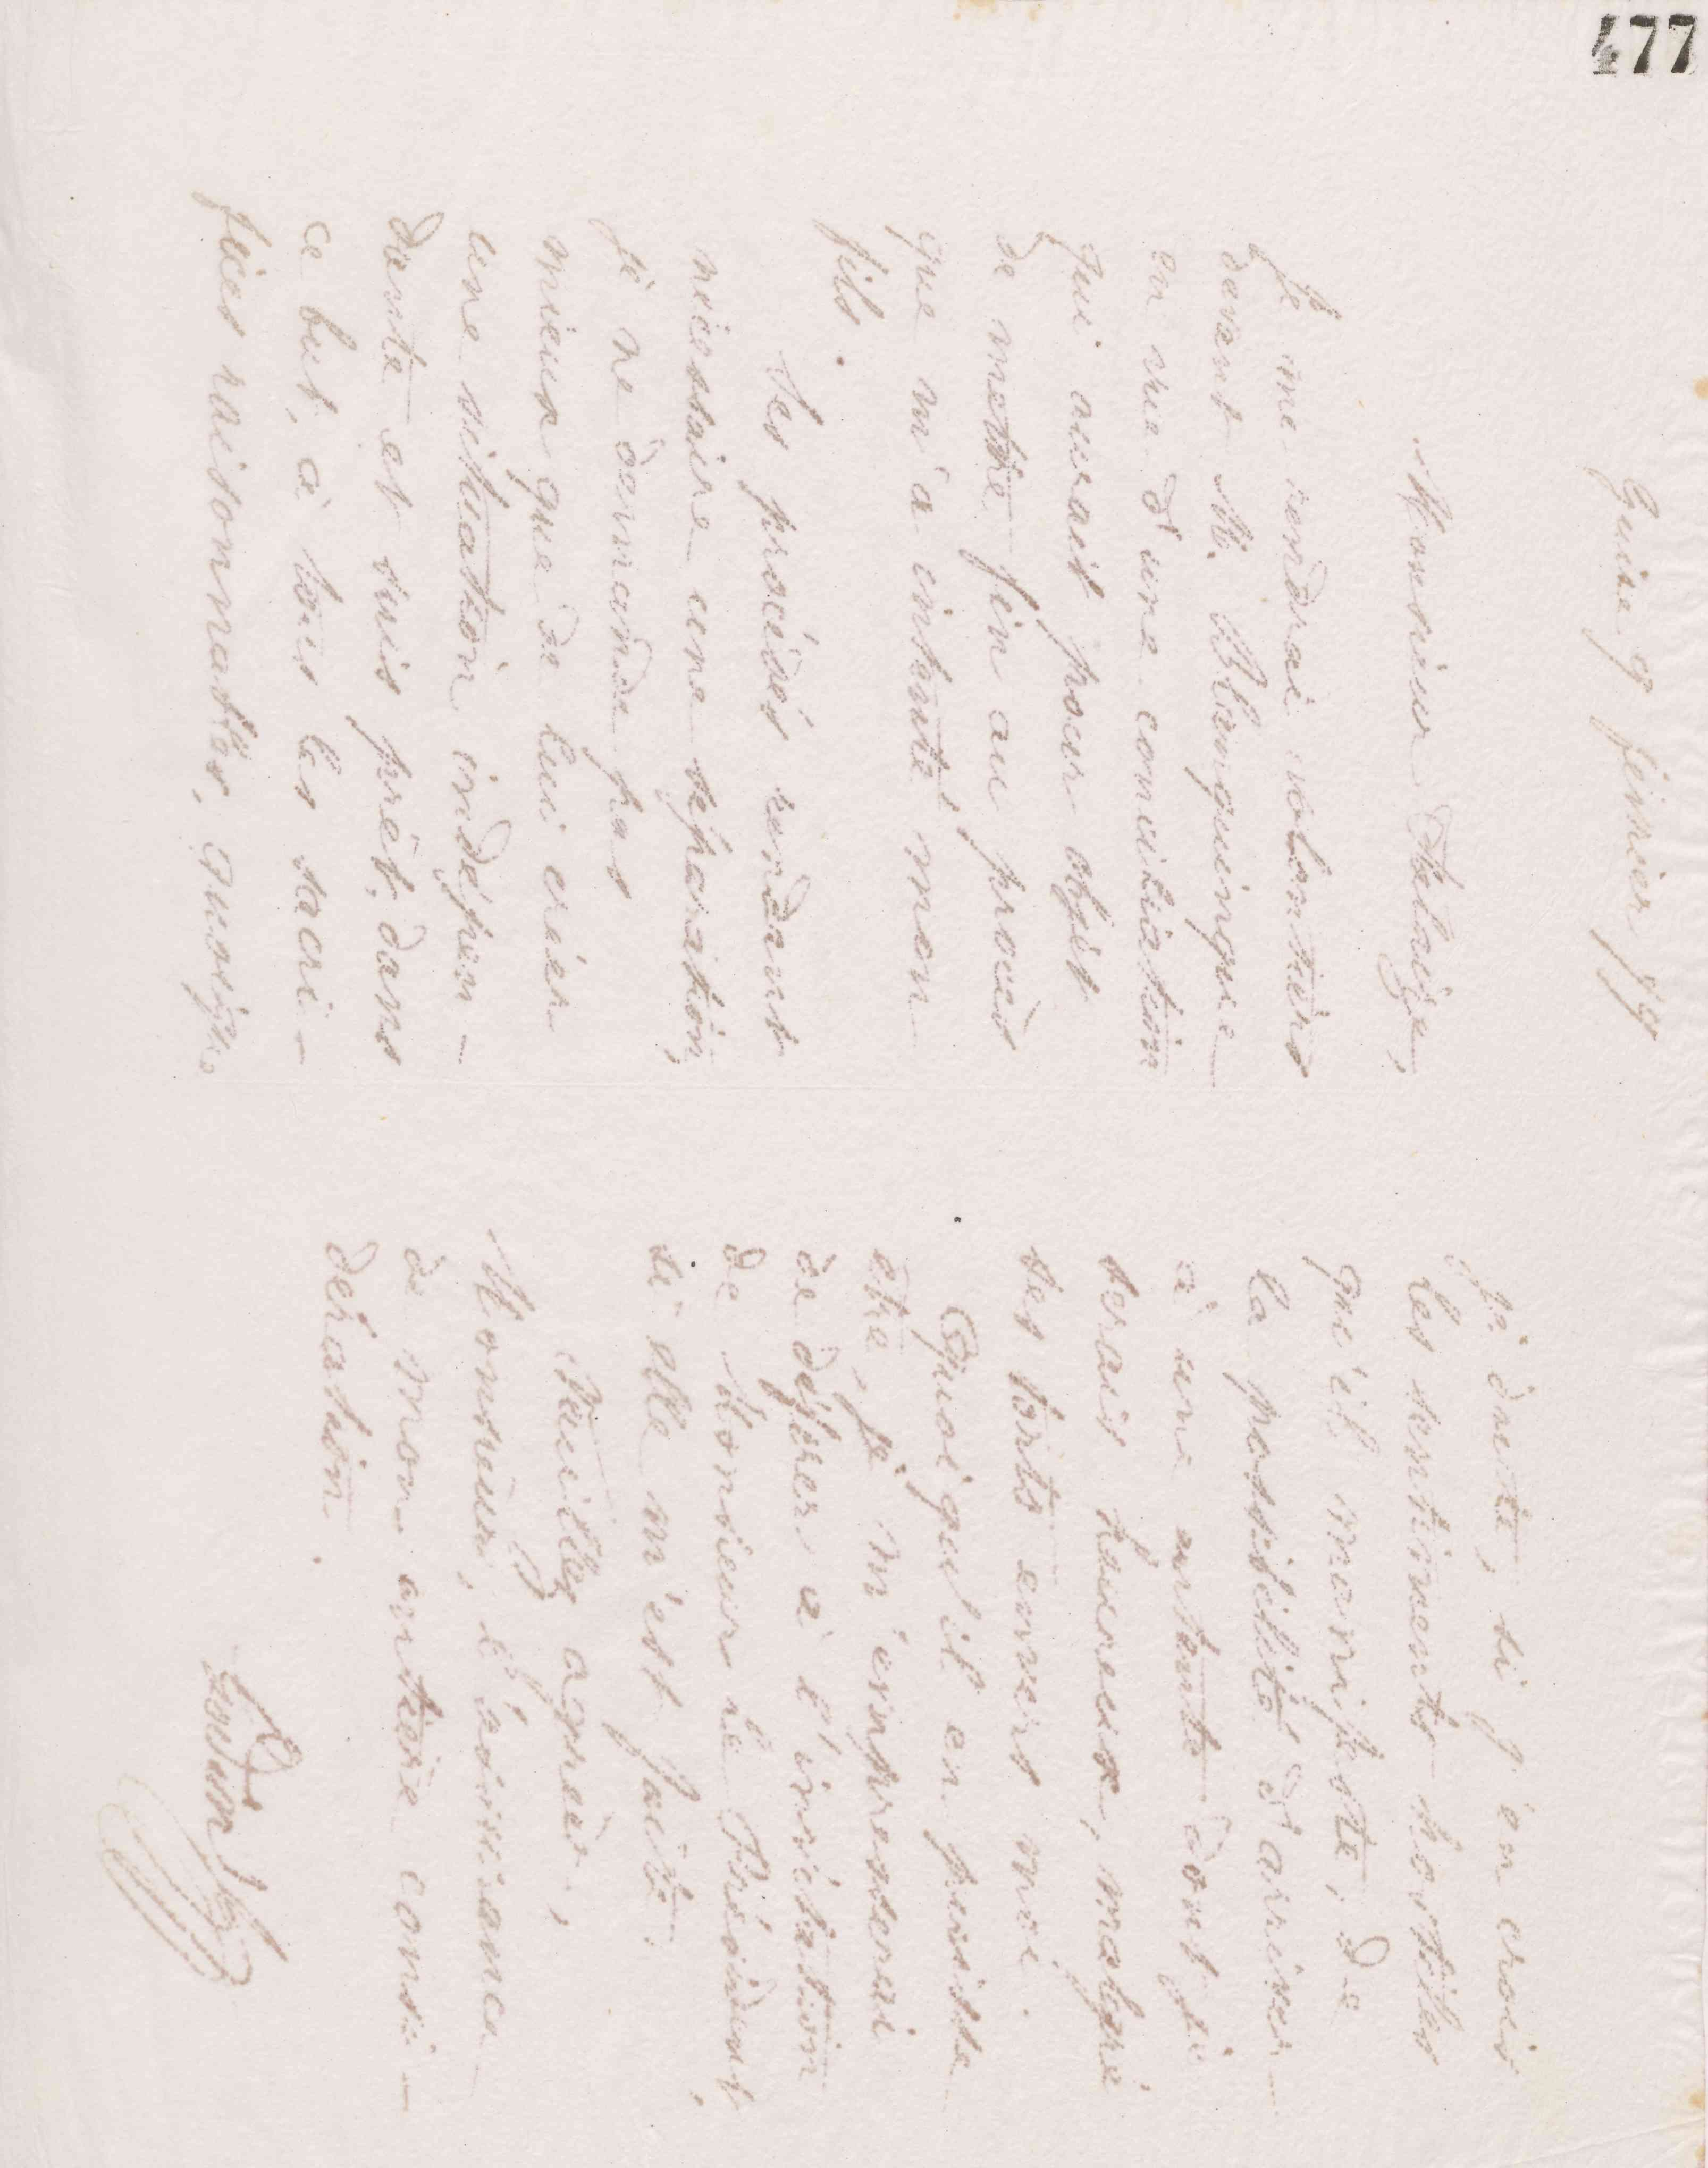 477
Guise 9 février 79
Monsieur Delaye,
Je me rendrai volontiers
devant M. Blanquinque
en vue d'une conciliation
qui aurait pour objet
de mettre fin au procès
que m'a intenté mon
fils.
Ses procédés rendant
nécessaire une séparation,
je ne demande pas
mieux que de lui créer
une situation indépen-
dante et suis prêt, dans
ce but, à tous les sacri-
fices raisonnables, quoique
je doute, si j'en crois
les sentiments hostiles
qu'il manifeste, de
la possibilité d'arriver
à une entente dont je
serais heureux, malgré
ses torts envers moi.
Quoiqu'il en puisse
être, je m'empresserai
de déférer à l'invitation
de Monsieur le Président,
si elle m'est faite.
Veuillez agréer,
Monsieur, l'assurance
de mon entière consi-
dération.
Godin